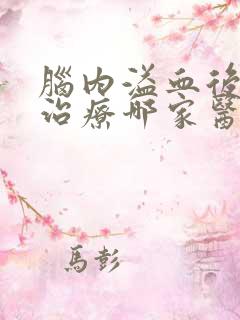 腦內溢血後
治療哪家醫
馬彭